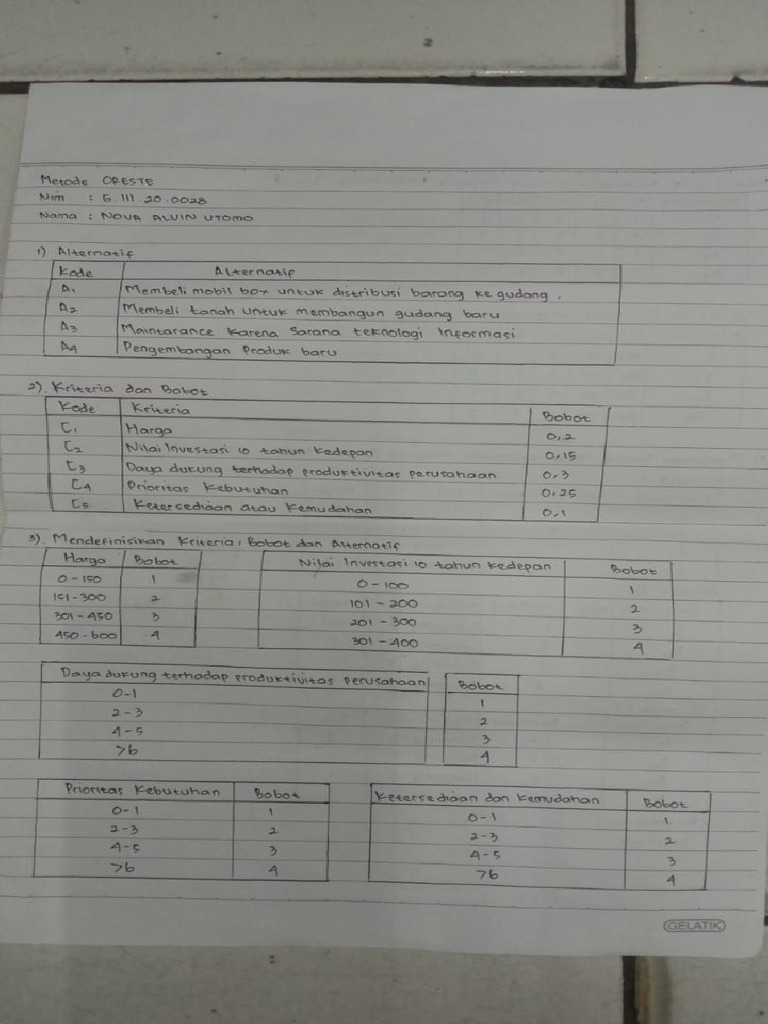 Metode ORESTE
Nim : G.111.20.0028
Nama : NOVA ALVIN UTOMO
1) Alternatif
Kode Alternatif
A1 Membeli mobil box untuk distribusi barang ke gudang.
A2 Membeli tanah untuk membangun gudang baru
A3 Maintarance karena sarana teknologi informasi
A4 Pengembangan Produk baru
2) Kriteria dan Bobot
Kode Kriteria Bobot
C1 Harga 0,2
C2 Nilai Investasi 10 tahun kedepan 0,15
C3 Daya dukung terhadap produktivitas perusahaan 0,3
C4 Prioritas Kebutuhan 0,25
C5 Ketersediaan atau Kemudahan 0,1
3) Mendefinisikan Kriteria, Bobot dan Alternatif
Harga Bobot
0-150 1
151-300 2
301-450 3
450-600 4
Nilai Investasi 10 tahun kedepan Bobot
0-100 1
101-200 2
201-300 3
301-400 4
Daya dukung terhadap produktivitas perusahaan Bobot
0-1 1
2-3 2
4-5 3
>6 4
Prioritas Kebutuhan Bobot
0-1 1
2-3 2
4-5 3
>6 4
Ketersediaan dan Kemudahan Bobot
0-1 1
2-3 2
4-5 3
>6 4
GELATIK